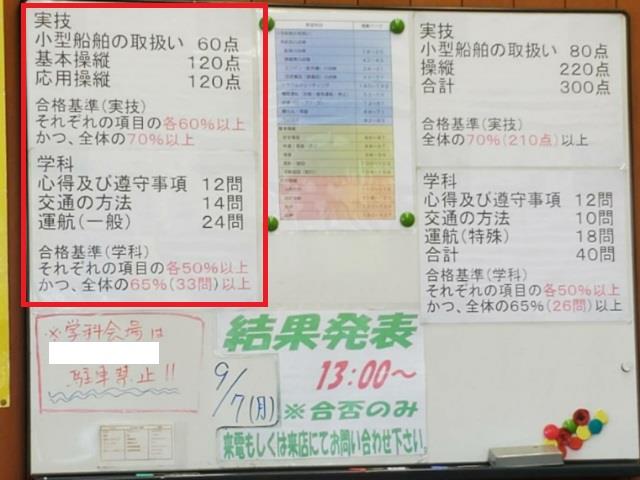 実技
小型船舶の取扱い 60点
基本操縦 120点
応用操縦 120点
合格基準(実技)
それぞれの項目の各60%以上
かつ、全体の70%以上
学科
心得及び遵守事項 12問
交通の方法 14問
運航(一般) 24問
合格基準(学科)
それぞれの項目の各50%以上
かつ、全体の65%(33問)以上
実技
小型船舶の取扱い 80点
操縦 220点
合計 300点
合格基準(実技)
全体の70%(210点)以上
学科
心得及び遵守事項 12問
交通の方法 10問
運航(特殊) 18問
合計 40問
合格基準(学科)
それぞれの項目の各50%以上
かつ、全体の65%(26問)以上
※学科会場は
駐車禁止!!
結果発表
9/7(月)
13:00~
※合否のみ
来電もしくは来店にてお問い合わせ下さい。